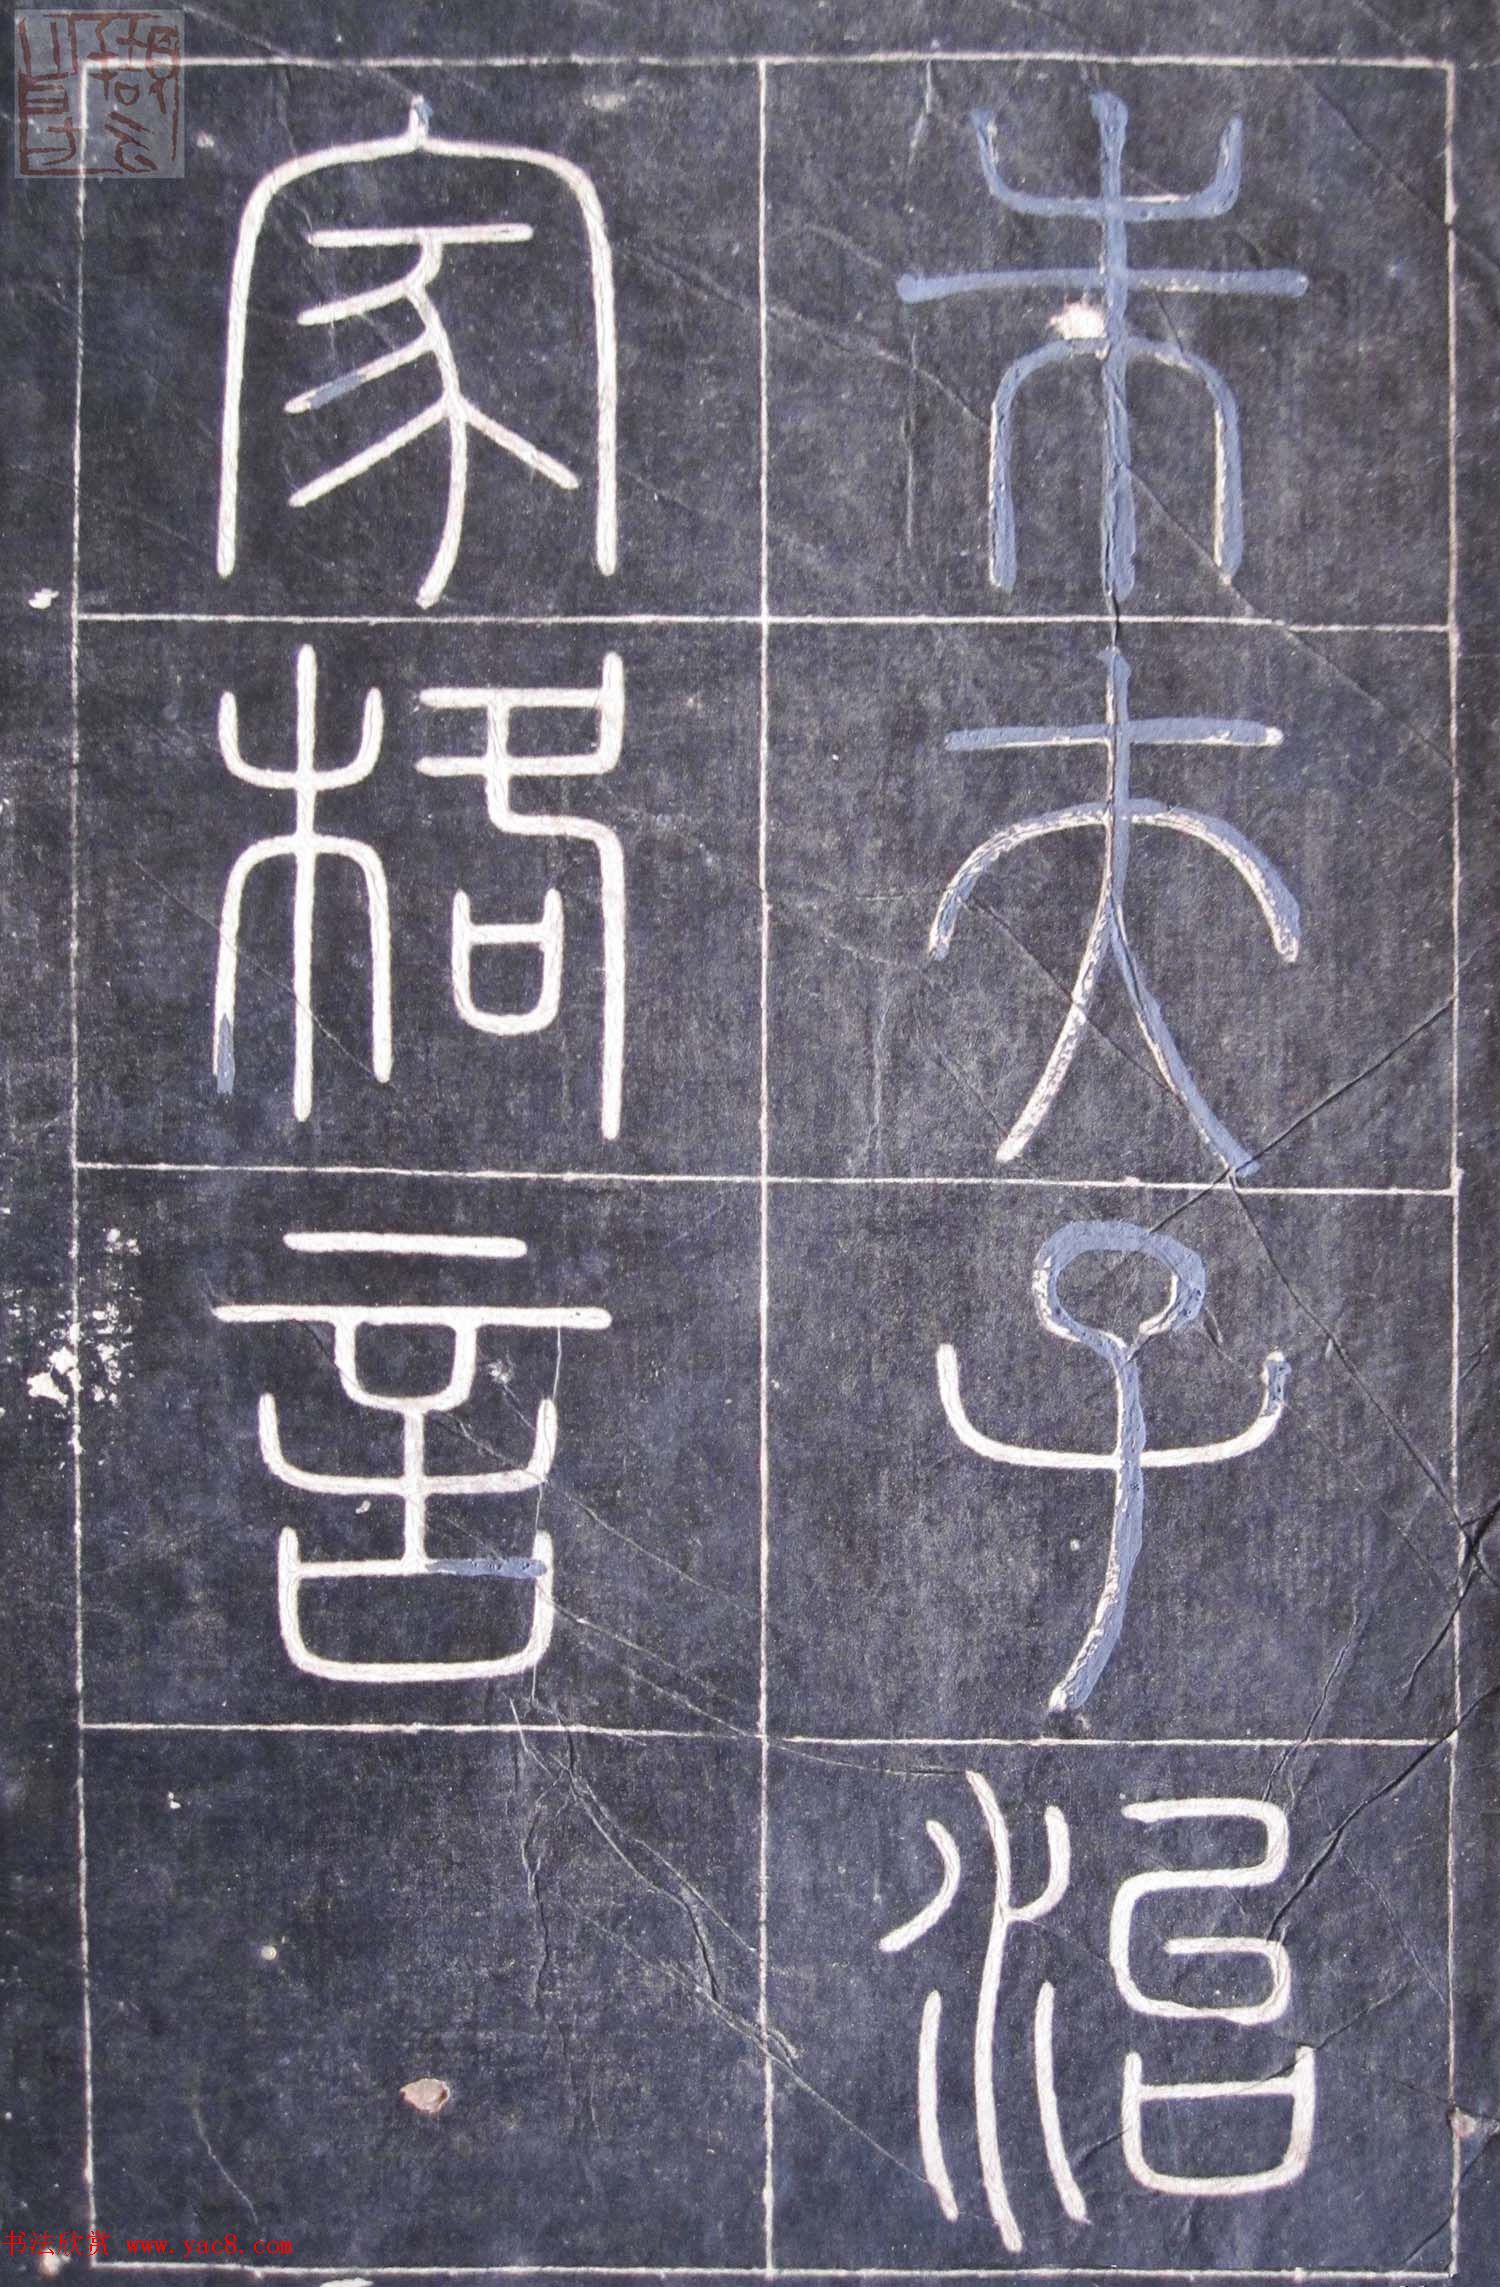 朱夫子治
家格言
书法欣赏 www.yac8.com